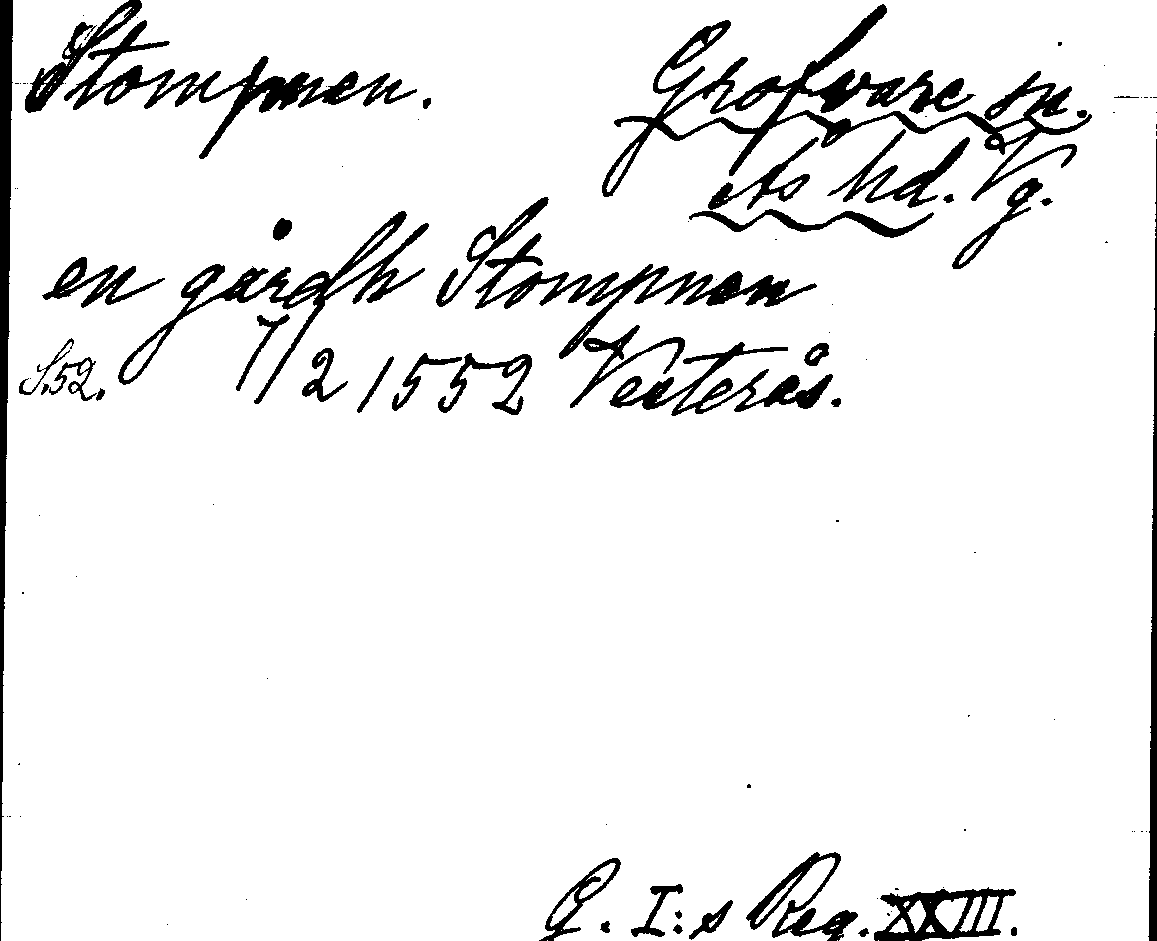 Stompnen. Grofvare sn.
Ås hd. Vg.
en gårdh Stompnen
S.52. 7/2 1552 Vesterås.
G. I:s Reg. XXIII.